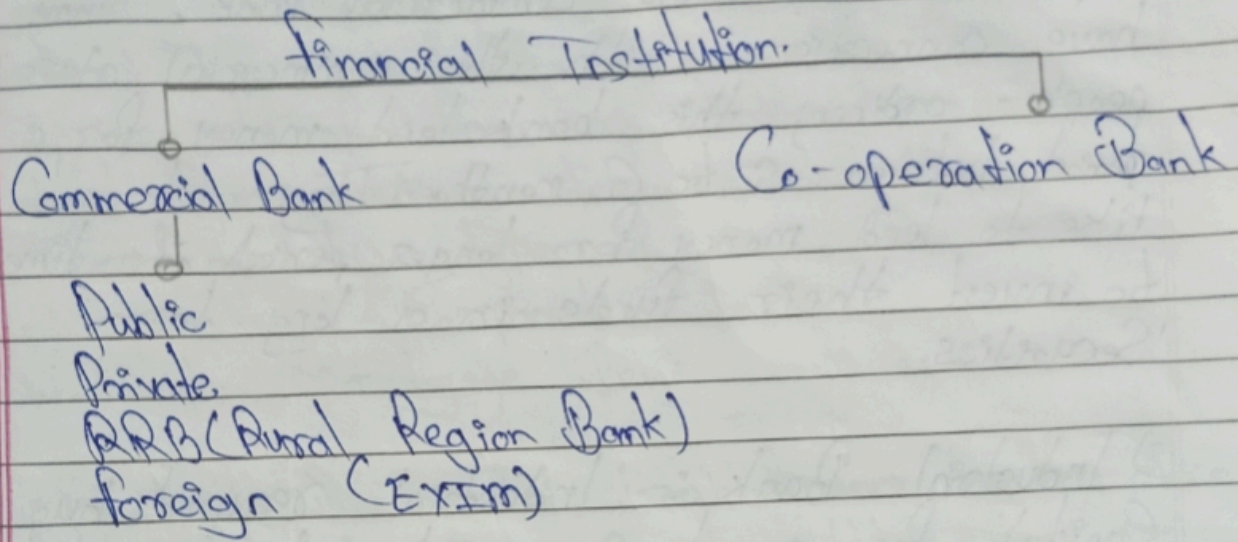 Financial Institution.
Commercial Bank Co-operation Bank
Public
Private
RRB (Rural Region Bank)
foreign (EXIM)